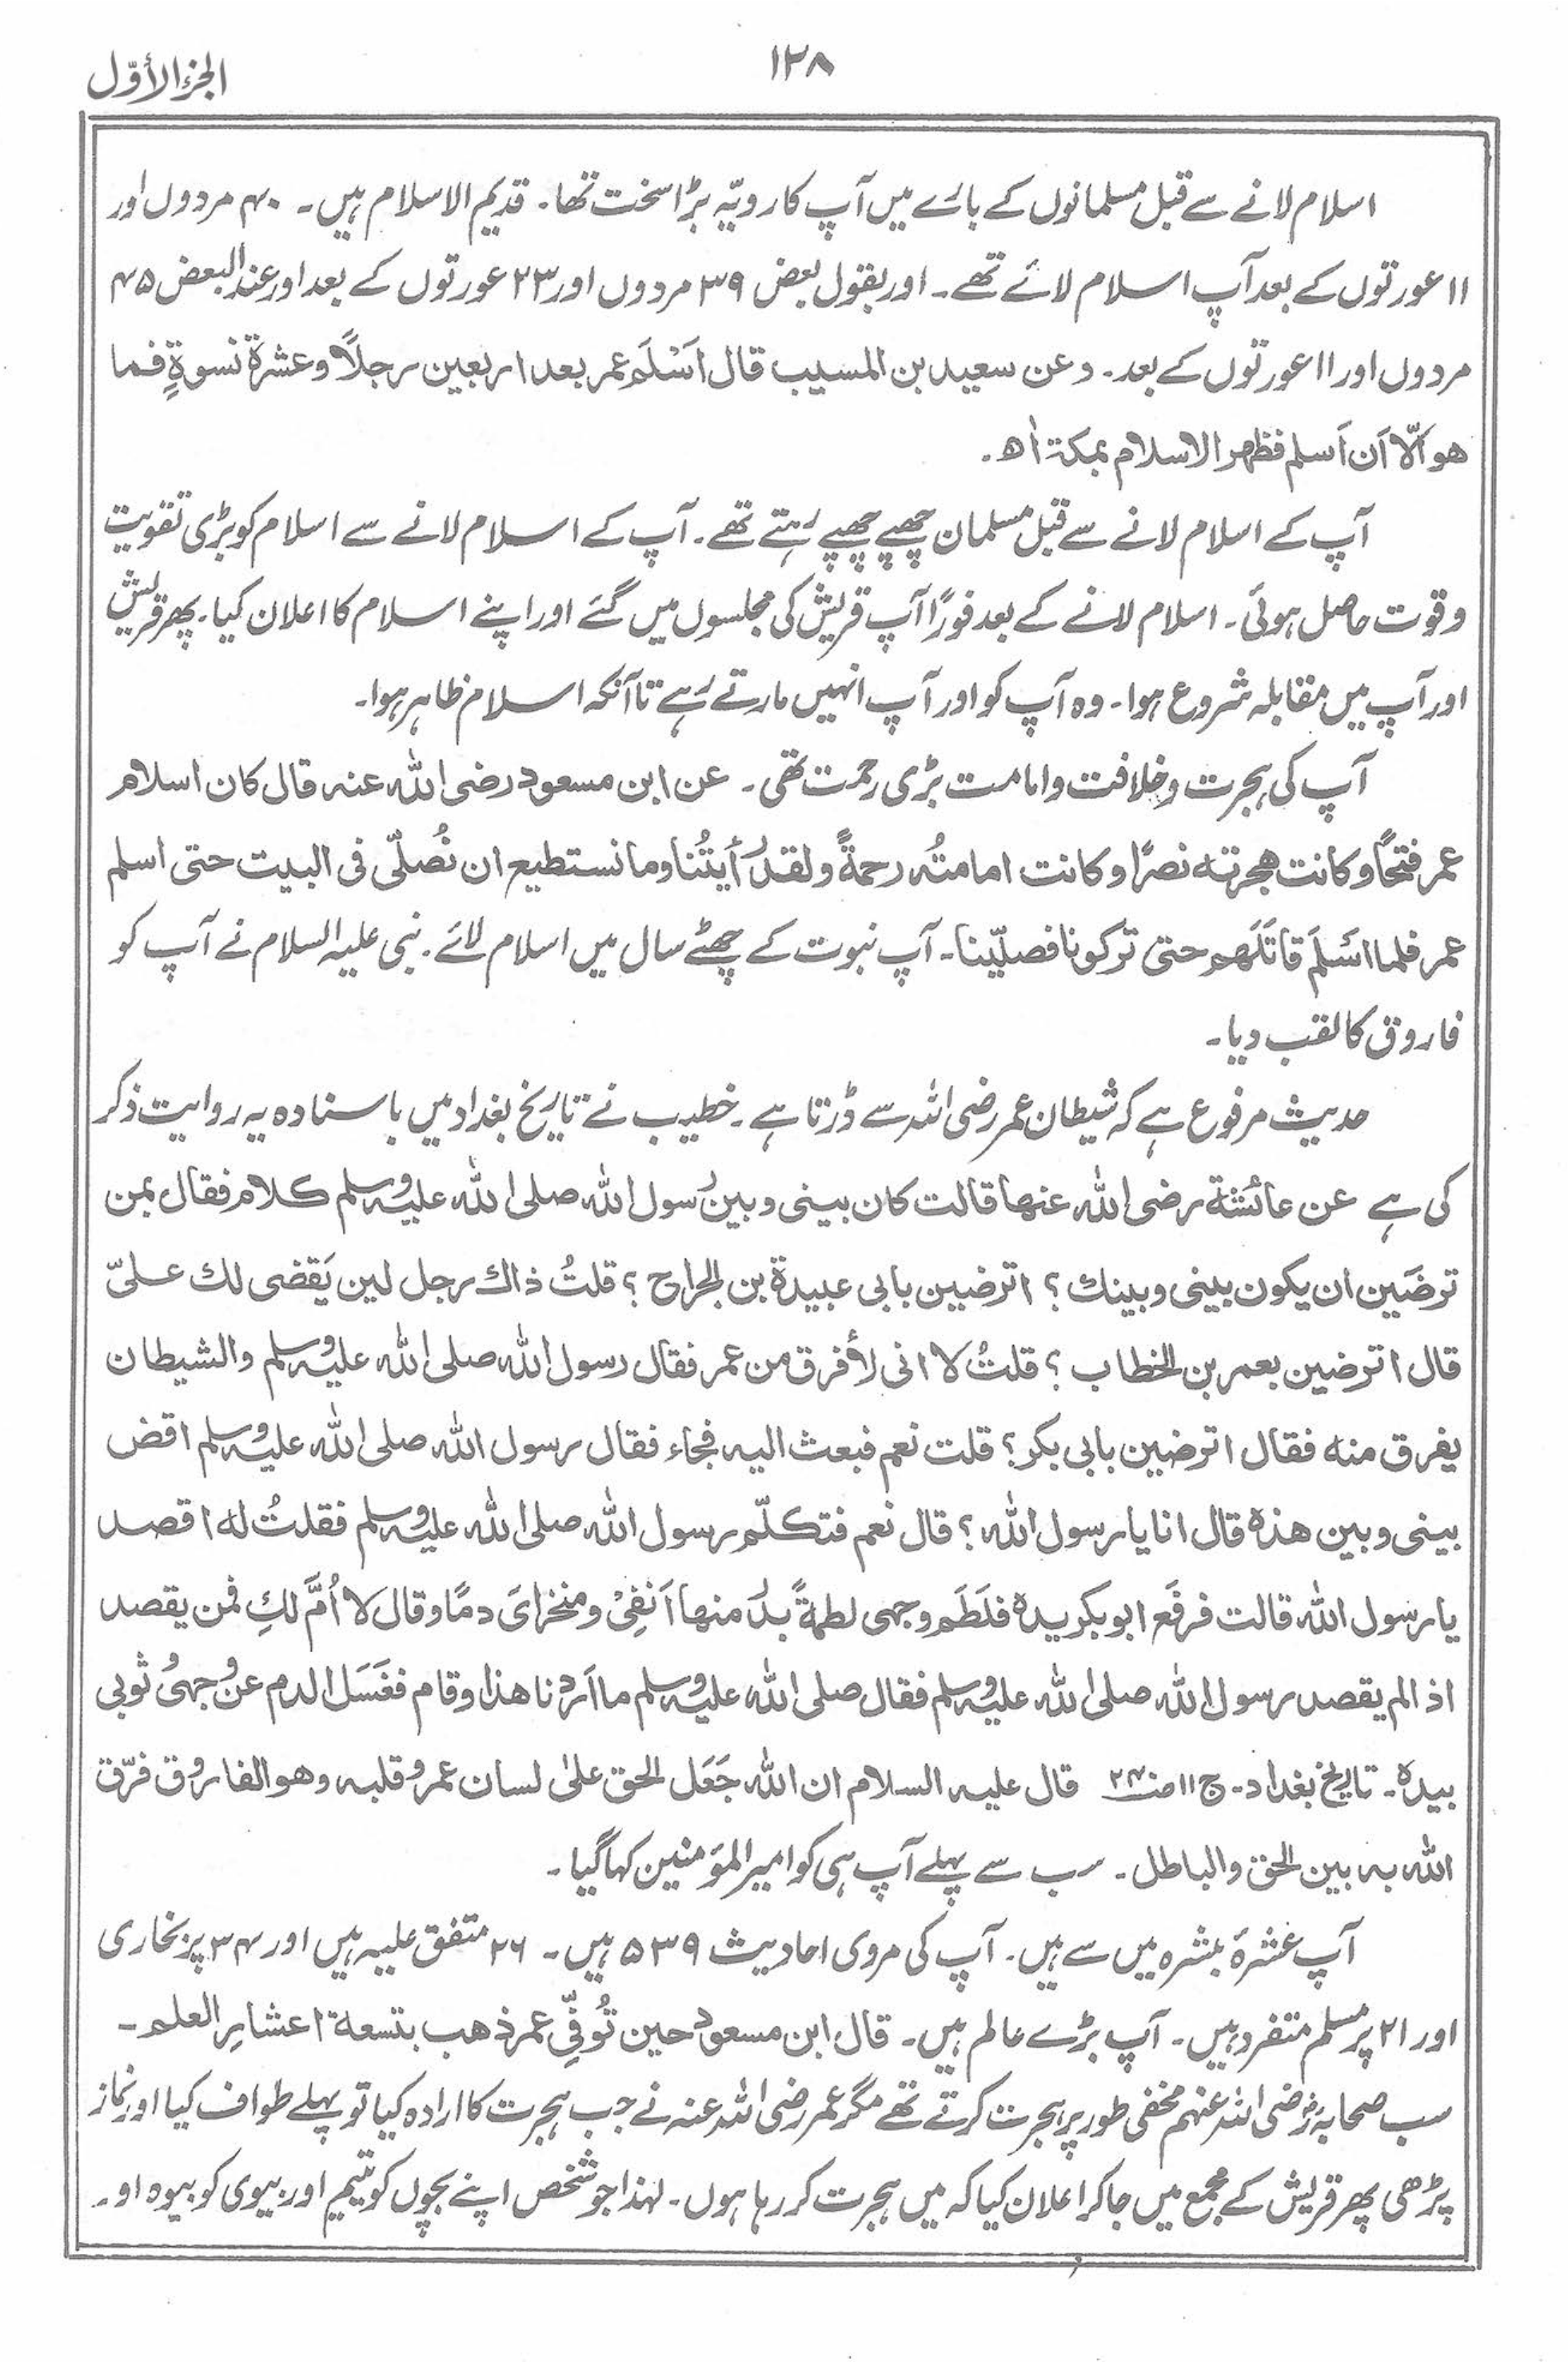 ١٢٨
الجزء الأوّل
اسلام لانے سے قبل مسلمانوں کے بارے میں آپ کا رویّہ بڑا سخت تھا۔ قدیم الاسلام ہیں۔ ۴۰ مردوں اور
۱۱ عورتوں کے بعد آپ اسلام لائے تھے۔ اور بقول بعض ۳۹ مردوں اور ۲۳ عورتوں کے بعد اور عند البعض ۴۵
مردوں اور ۱۱ عورتوں کے بعد۔ وعن سعید بن المسیب قال اَسْلَم عمر بعد اربعین رجلاً وعشرة نسوةٍ فما
هو الّا اَن اَسلم فظهر الاسلام بمكة اه۔
آپ کے اسلام لانے سے قبل مسلمان چھپے چھپے رہتے تھے۔ آپ کے اسلام لانے سے اسلام کو بڑی تقویت
وقوت حاصل ہوئی۔ اسلام لانے کے بعد فورًا آپ قریش کی مجلسوں میں گئے اور اپنے اسلام کا اعلان کیا۔ پھر قریش
اور آپ میں مقابلہ شروع ہوا۔ وہ آپ کو اور آپ انہیں مارتے رہے تا آنکہ اسلام ظاہر ہوا۔
آپ کی ہجرت وخلافت وامامت بڑی رحمت تھی۔ عن ابن مسعود رضی اللہ عنه قال كان اسلام
عمر فتحًا وكانت هجرته نصرًا وكانت امامتُه رحمةً ولقد رأيتُنا وما نستطيع ان نُصلّى فى البيت حتى اسلم
عمر فلما اَسْلَمَ قاتَلَهم حتى تركونا فصلّينا۔ آپ نبوت کے چھٹے سال میں اسلام لائے۔ نبی علیہ السلام نے آپ کو
فاروق کا لقب دیا۔
حدیث مرفوع ہے کہ شیطان عمر رضی اللہ سے ڈرتا ہے۔ خطیب نے تاریخ بغداد میں باسنادہ یہ روایت ذکر
کی ہے عن عائشة رضى الله عنها قالت كان بينى وبين رسول الله صلى الله عليه وسلم كلام فقال بمن
ترضَين ان يكون بينى وبينك؟ اترضين بابى عبيدة بن الجراح؟ قلتُ ذاك رجل لين يَقضى لك علىّ
قال اترضين بعمر بن الخطاب؟ قلتُ لا انى لأفرق من عمر فقال رسول الله صلى الله عليه وسلم والشيطان
يفرق منه فقال اترضين بابى بكر؟ قلت نعم فبعث اليه فجاء فقال رسول الله صلى الله عليه وسلم اقض
بينى وبين هذه قال انا يا رسول الله؟ قال نعم فتكلّم رسول الله صلى الله عليه وسلم فقلتُ له اقصد
يا رسول الله قالت فرفَع ابو بكر يده فلَطَم وجهى لطمةً بدَر منها اَنفِىْ ومنخراىَ دمًا وقال لا اُمَّ لكِ فمن يقصد
اذا لم يقصد رسول الله صلى الله عليه وسلم فقال صلى الله عليه وسلم ما اَردنا هذا وقام فغَسَل الدم عن وجهى وثوبى
بيده۔ تاریخ بغداد۔ ج ۱۱ صـ ۲۴۰ قال عليه السلام ان الله جَعَل الحق علىٰ لسان عمر وقلبه وهو الفاروق فرّق
الله به بين الحق والباطل۔ سب سے پہلے آپ ہی کو امیر المؤمنین کہا گیا۔
آپ عشرۂ مبشرہ میں سے ہیں۔ آپ کی مروی احادیث ۵۳۹ ہیں۔ ۲۶ متفق علیہ ہیں اور ۳۴ پر بخاری
اور ۲۱ پر مسلم متفرد ہیں۔ آپ بڑے عالم ہیں۔ قال ابن مسعود حين تُوفِّى عمر ذهب بتسعة اعشارِ العلم۔
سب صحابہ رضی اللہ عنہم مخفی طور پر ہجرت کرتے تھے مگر عمر رضی اللہ عنہ نے جب ہجرت کا ارادہ کیا تو پہلے طواف کیا اور نماز
پڑھی پھر قریش کے مجمع میں جا کر اعلان کیا کہ میں ہجرت کر رہا ہوں۔ لہذا جو شخص اپنے بچوں کو یتیم اور بیوی کو بیوہ اور